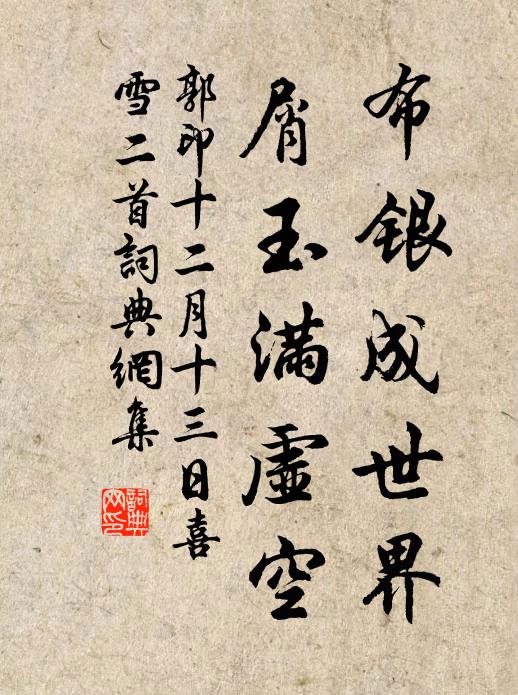 布銀成世界
屑玉滿虛空
郭印十二月十三日喜
雪二首詞典網集
詞典网印